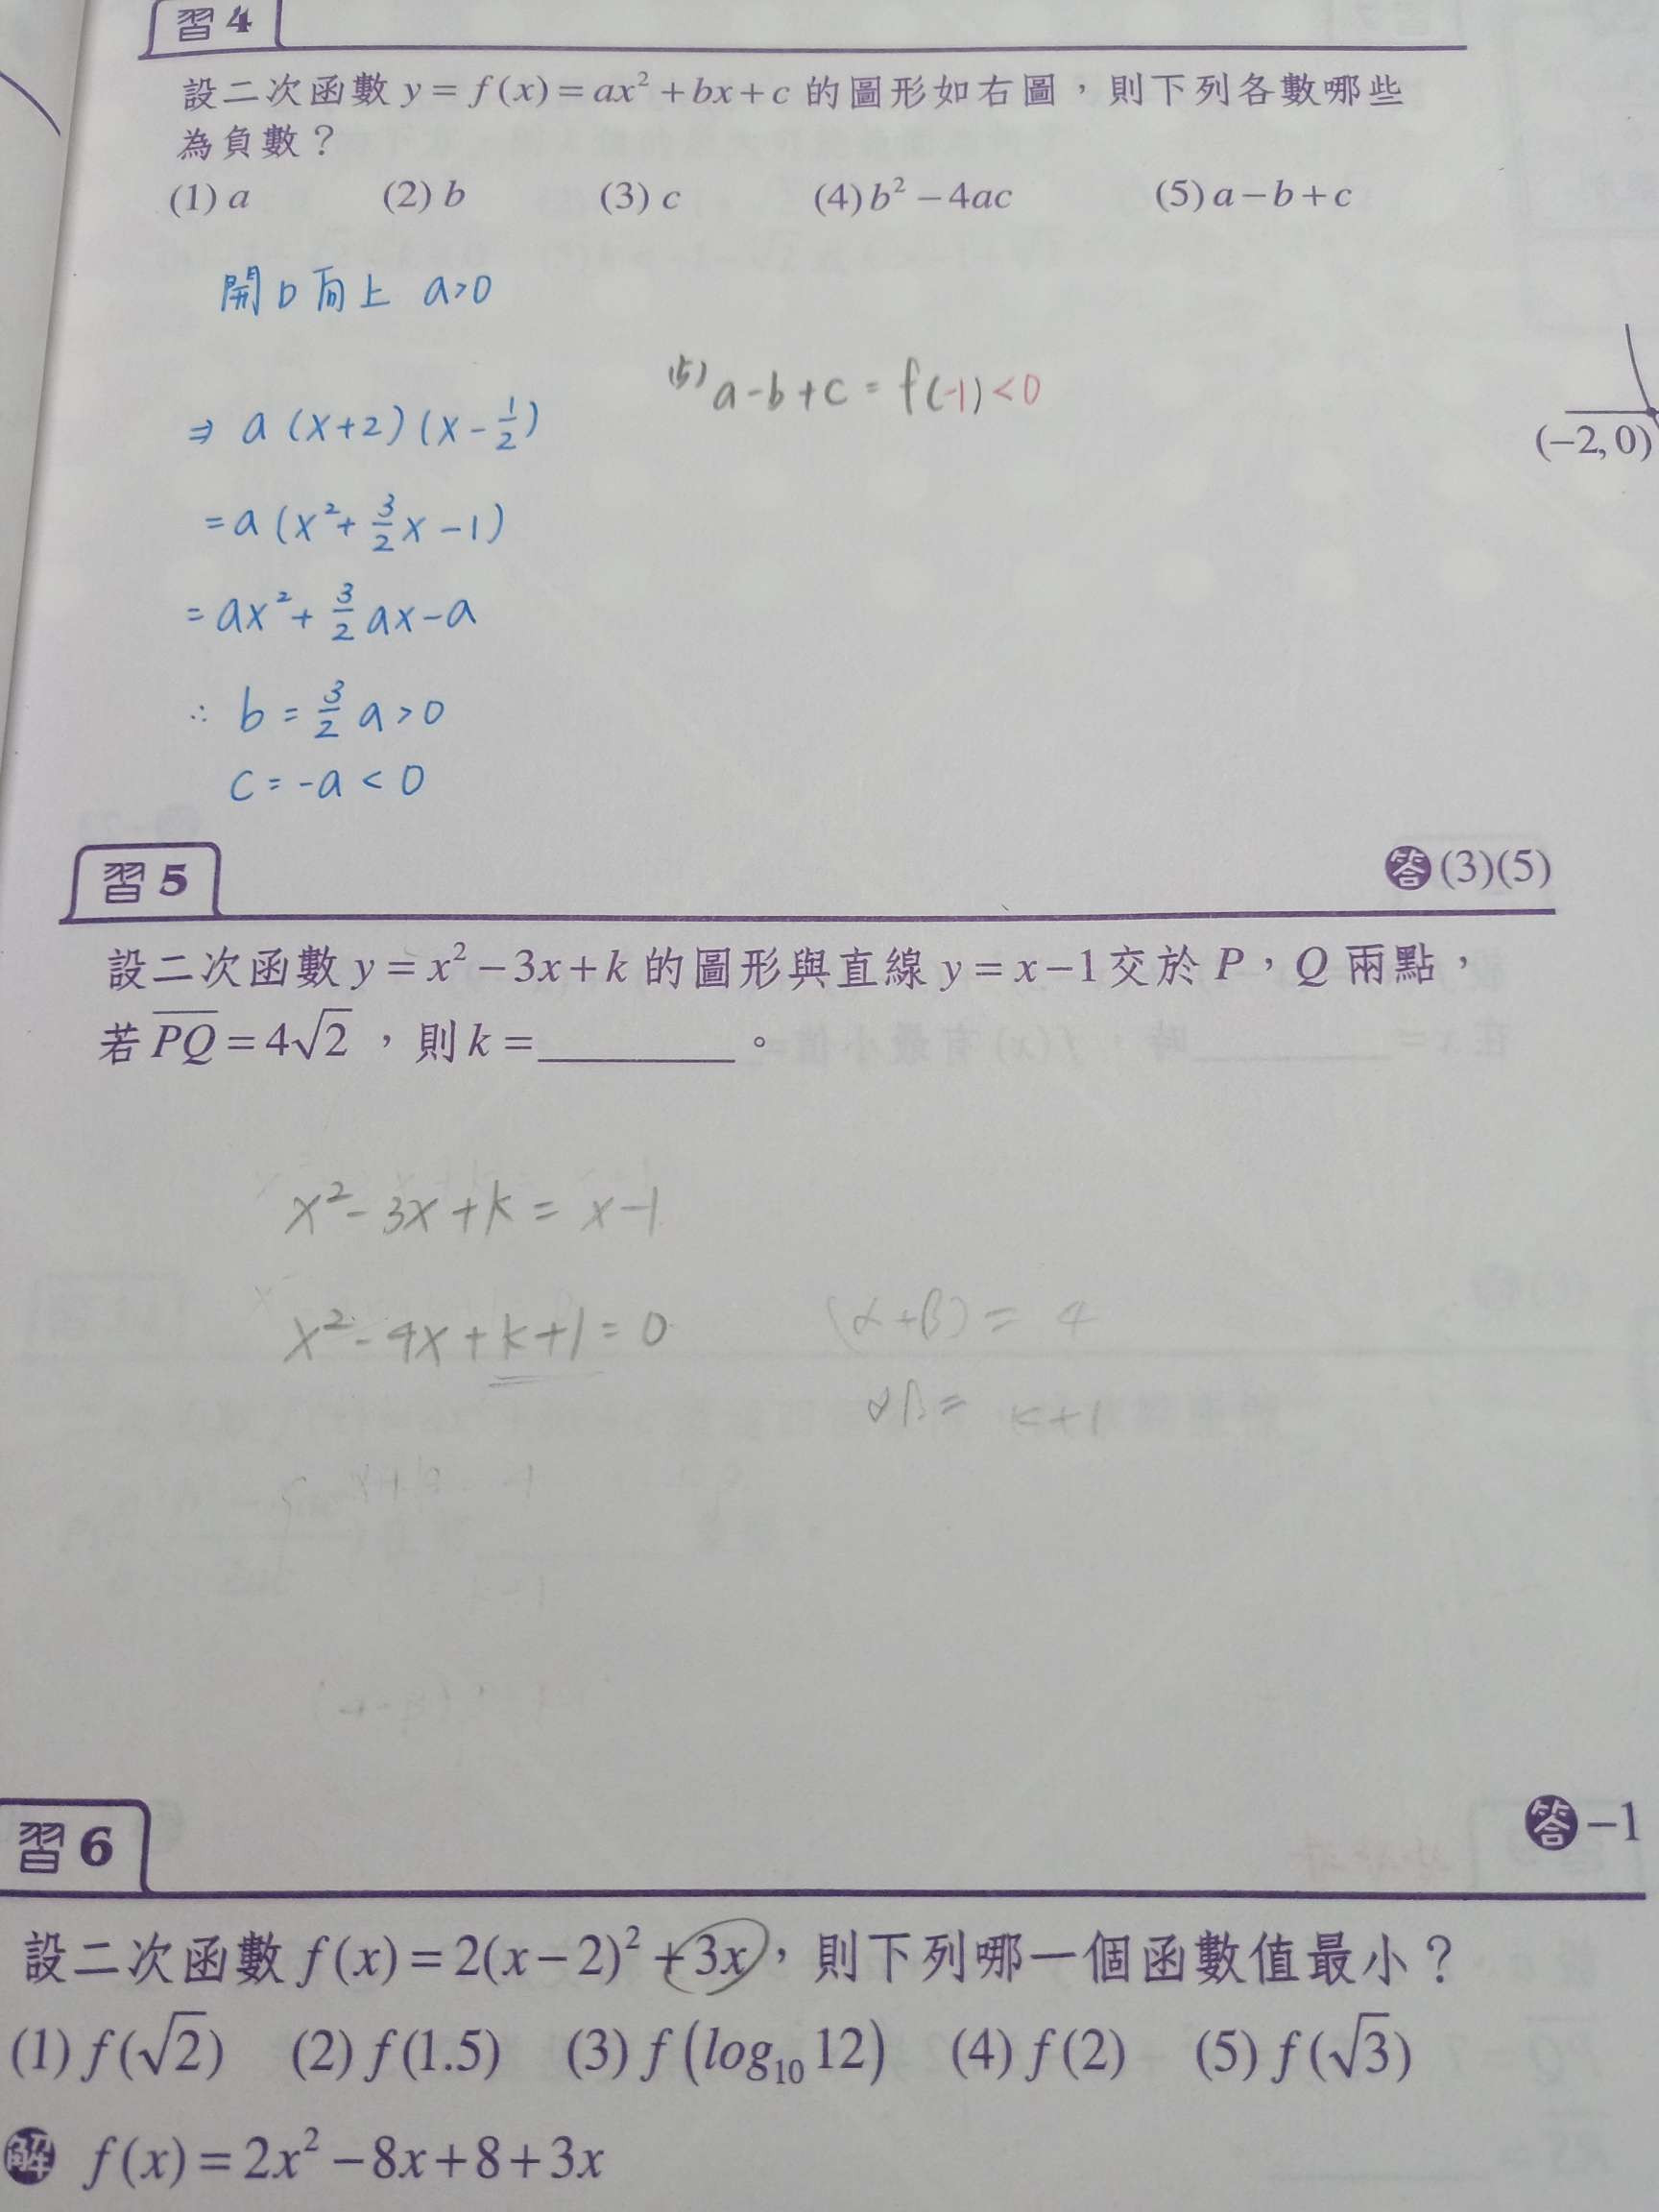 習4
設二次函數 y = f(x) = ax² + bx + c 的圖形如右圖，則下列各數哪些
為負數？
(1) a (2) b (3) c (4) b² − 4ac (5) a − b + c
開口向上 a>0
(5) a-b+c = f(-1) < 0
⇒ a(x+2)(x-1/2)
(−2, 0)
= a(x²+3/2x-1)
= ax²+3/2ax-a
∴ b = 3/2a > 0
c = -a < 0
答 (3)(5)
習5
設二次函數 y = x² − 3x + k 的圖形與直線 y = x − 1 交於 P，Q 兩點，
若 PQ = 4√2，則 k = ________。
x²-3x+k = x-1
x²-4x+k+1=0
(α+β) = 4
αβ = k+1
答 −1
習6
設二次函數 f(x) = 2(x − 2)² + 3x，則下列哪一個函數值最小？
(1) f(√2) (2) f(1.5) (3) f(log₁₀12) (4) f(2) (5) f(√3)
解 f(x) = 2x² − 8x + 8 + 3x